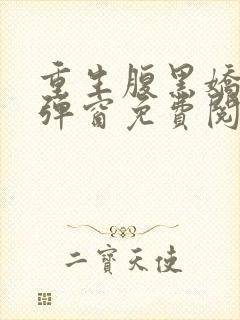 重生腹黑嬌
彈窗免費閱
二寶天使